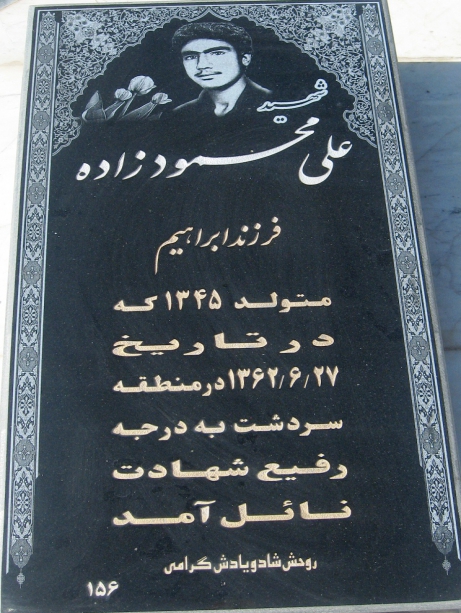 شهید
علی محمودزاده
فرزند ابراهیم
متولد ۱۳۴۵ که
در تاریخ
۱۳۶۲/۶/۲۷ در منطقه
سردشت به درجه
رفیع شهادت
نائل آمد
روحش شاد و یادش گرامی
۱۵۶